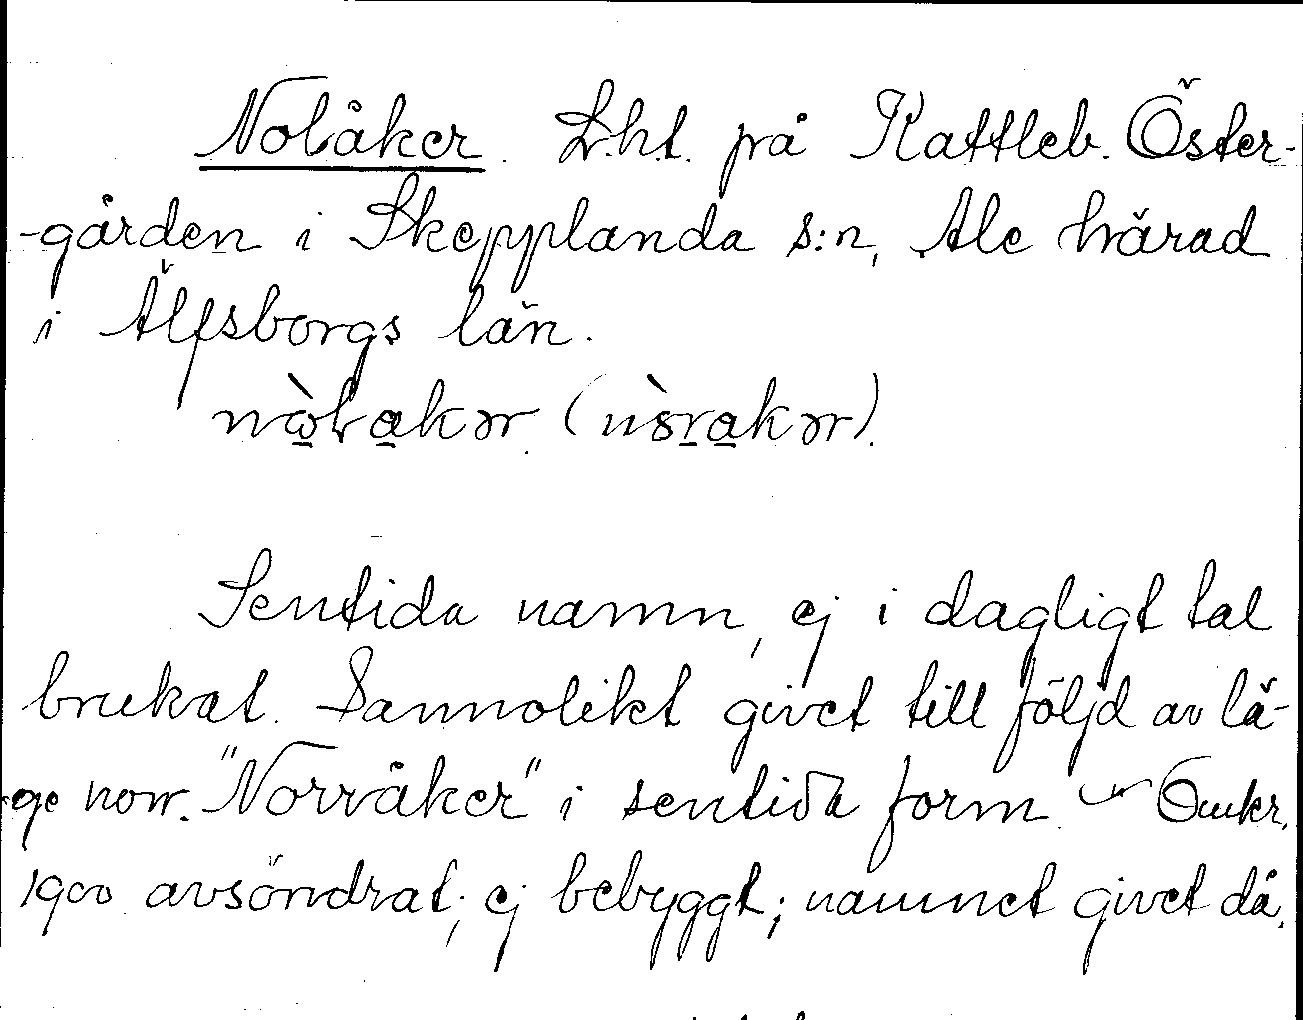 Nolåker. L.h.t. på Kattleb. Öster-
-gården i Skepplanda s:n, Ale härad
i Älfsborgs län.
Sentida namn, ej i dagligt tal
brukat. Sannolikt givet till följd av lä-
ge norr. "Norråker" i sentida form. — Omkr.
1900 avsöndrat; ej bebyggt; namnet givet då.